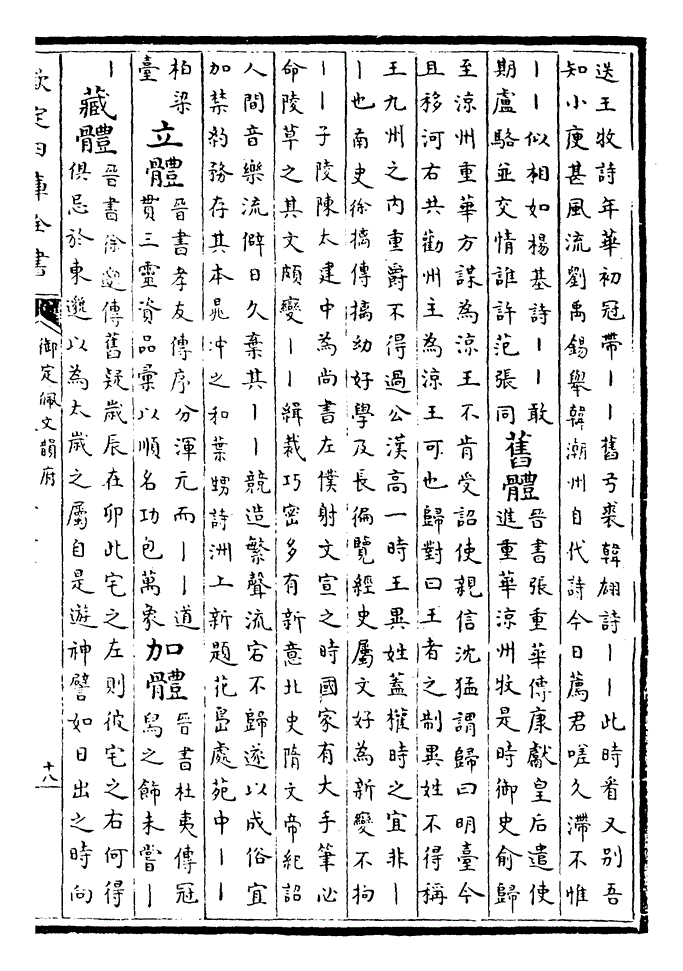 送王牧詩年華初冠帶丨丨舊弓裘韓翃詩丨丨此時看又别吾
知小庾甚風流劉禹錫舉韓潮州自代詩今日薦君嗟久滯不惟
丨丨似相如楊基詩丨丨敢
期盧駱並交情誰許范張同
舊體
晉書張重華傳康獻皇后遣使
進重華涼州牧是時御史俞歸
至涼州重華方謀為涼王不肯受詔使親信沈猛謂歸曰明臺今
且移河右共勸州主為涼王可也歸對曰王者之制異姓不得稱
王九州之内重爵不得過公漢高一時王異姓蓋權時之宜非丨
丨也南史徐摛傳摛幼好學及長徧覽經史屬文好為新變不拘
丨丨子陵陳太建中為尚書左僕射文宣之時國家有大手筆必
命陵草之其文頗變丨丨緝裁巧密多有新意北史隋文帝紀詔
人間音樂流僻日久棄其丨丨競造繁聲流宕不歸遂以成俗宜
加禁約務存其本晁沖之和葉甥詩洲上新題花島處苑中丨丨
柏梁
臺
立體
晉書孝友傳序分渾元而丨丨道
貫三靈資品彙以順名功包萬象
加體
晉書杜夷傳冠
舄之飾未嘗丨
丨
藏體
晉書徐邈傳舊疑歲辰在卯此宅之左則彼宅之右何得
俱忌於東邈以為太歲之屬自是遊神譬如日出之時向
欽定四庫全書
御定佩文韻府
十八